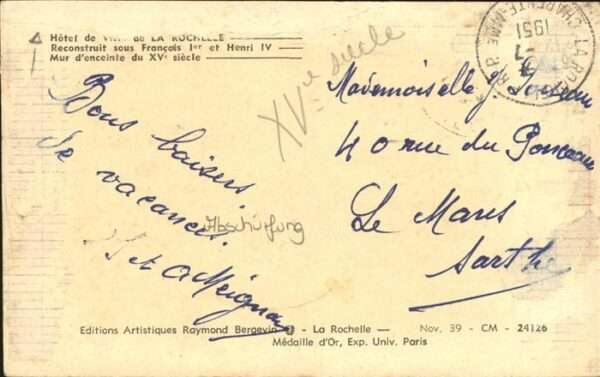 Hôtel de Ville de LA ROCHELLE
Reconstruit sous François Ier et Henri IV
Mur d'enceinte du XVe siècle
XVe siècle
LA ROCHELLE
CHARENTE-MME
1951
Bons baisers
de vacances.
Abschürfung
et A Meignan
Mademoiselle J
40 rue du Ponceau
Le Mans
Sarthe
Editions Artistiques Raymond Bergevin - La Rochelle — Nov. 39 - CM - 24126
Médaille d'Or, Exp. Univ. Paris